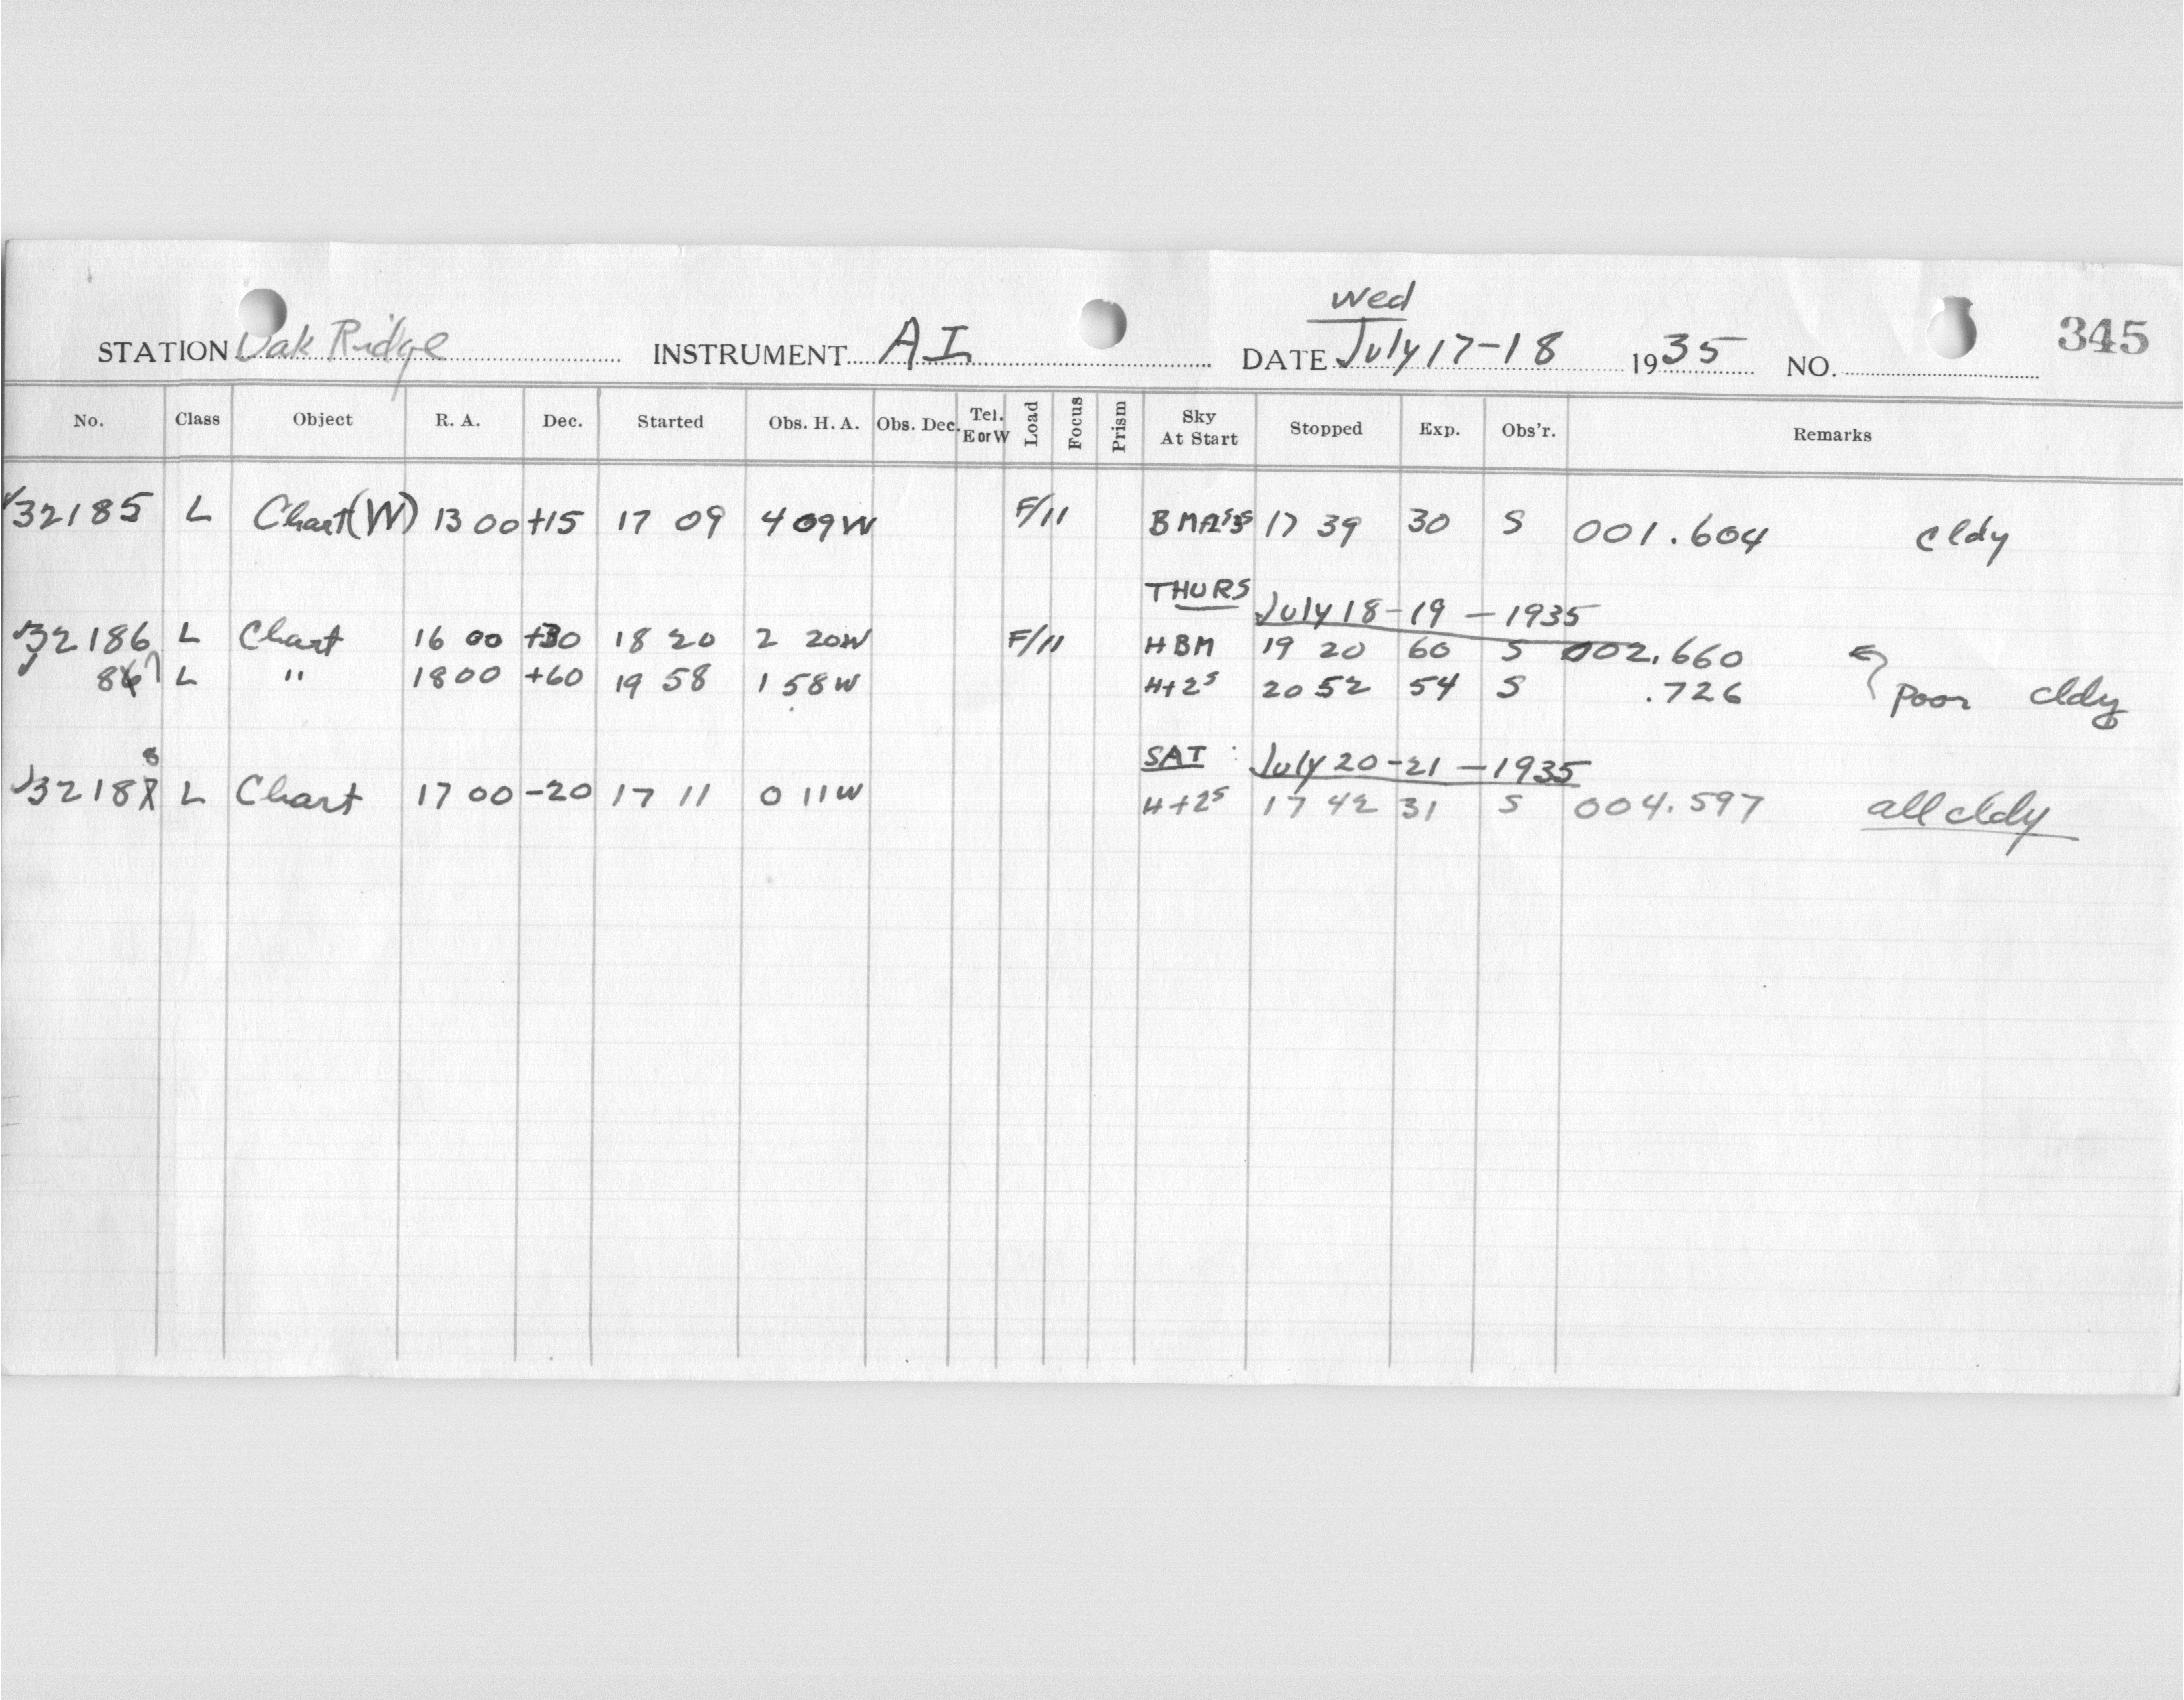 wed
STATION Oak Ridge INSTRUMENT AI DATE July 17-18 1935 NO. 345
No. Class Object R. A. Dec. Started Obs. H. A. Obs. Dec. Tel. E or W Load Focus Prism Sky At Start Stopped Exp. Obs'r. Remarks
32185 L Chart(W) 13 00 +15 17 09 4 09W F/11 17 39 30 S 001.604 cldy
THURS July 18-19 - 1935
32186 L Chart 16 00 +30 18 20 2 20W F/11 HBM 19 20 60 S 002.660
867 L " 18 00 +60 19 58 1 58W H+2s 20 52 54 S .726 Poor cldy
SAT July 20-21 - 1935
32188 L Chart 17 00 -20 17 11 0 11W H+2s 17 42 31 S 004.597 all cldy